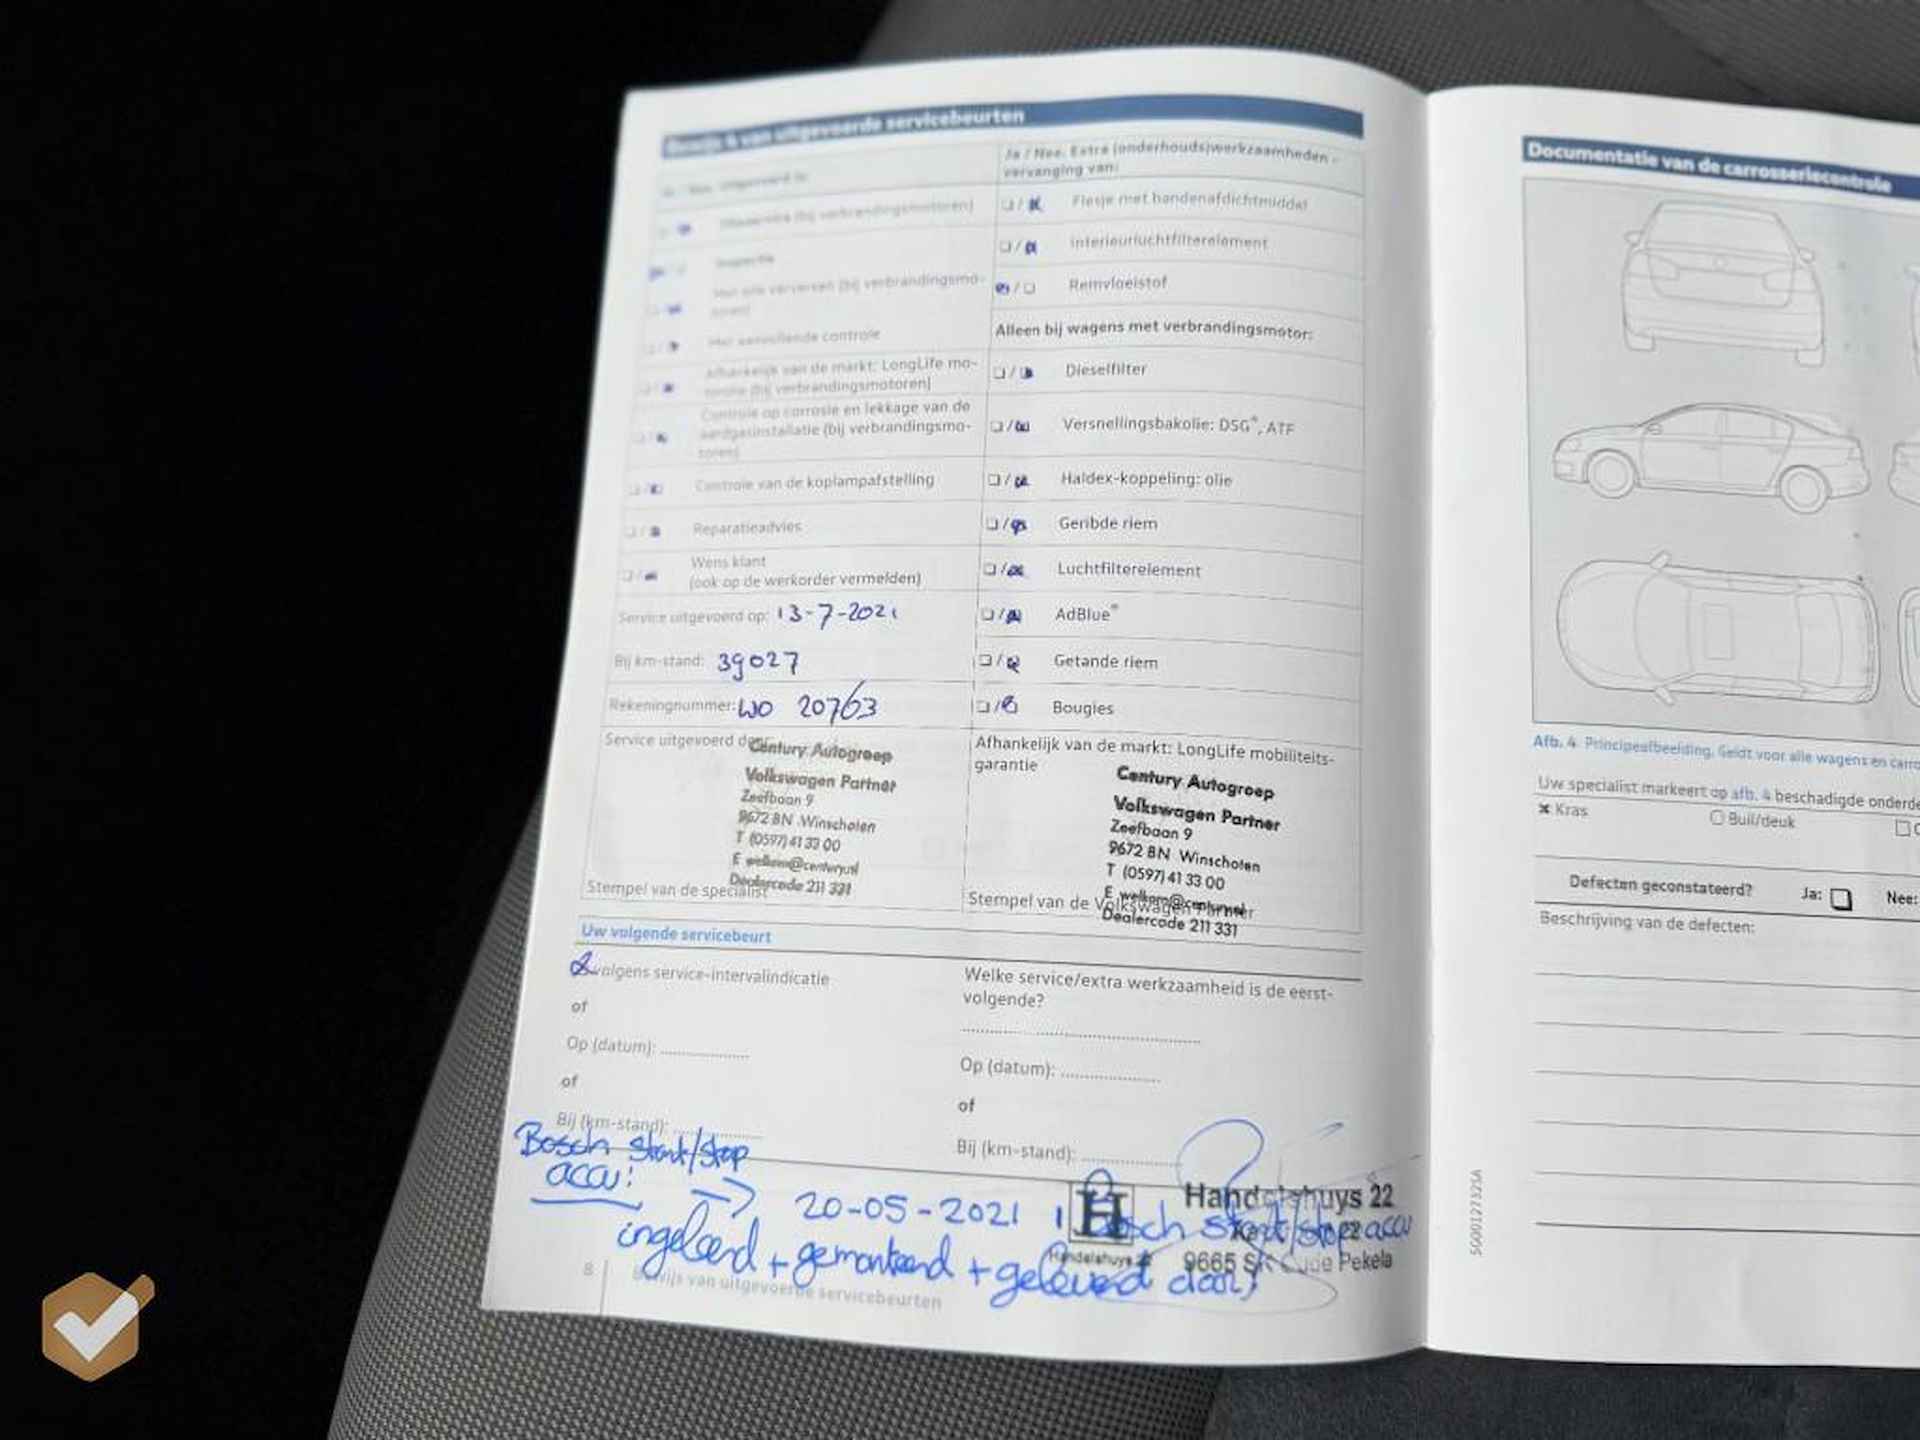 Bewijs 4 van uitgevoerde servicebeurten
Ja / Nee. Uitgevoerd is:
Olieservice (bij verbrandingsmotoren)
Inspectie
Met olie verversen (bij verbrandingsmo-
toren)
Met aanvullende controle
Afhankelijk van de markt: LongLife mo-
(bij verbrandingsmotoren)
Controle op corrosie en lekkage van de
aardgasinstallatie (bij verbrandingsmo-
toren)
Controle van de koplampafstelling
Reparatieadvies
Wens klant
(ook op de werkorder vermelden)
Service uitgevoerd op: 13-7-2021
Bij km-stand: 39027
Rekeningnummer: WO 20763
Service uitgevoerd door:
Century Autogroep
Volkswagen Partner
Zeefbaan 9
9672 BN Winschoten
T (0597) 41 33 00
E welkom@century.nl
Dealercode 211 331
Stempel van de specialist
Ja / Nee. Extra (onderhouds)werkzaamheden -
vervanging van:
Flesje met bandenafdichtmiddel
Interieurluchtfilterelement
Remvloeistof
Alleen bij wagens met verbrandingsmotor:
Dieselfilter
Versnellingsbakolie: DSG®, ATF
Haldex-koppeling: olie
Geribde riem
Luchtfilterelement
AdBlue®
Getande riem
Bougies
Afhankelijk van de markt: LongLife mobiliteits-
garantie
Century Autogroep
Volkswagen Partner
Zeefbaan 9
9672 BN Winschoten
T (0597) 41 33 00
E welkom@century.nl
Dealercode 211 331
Stempel van de Volkswagen Partner
Uw volgende servicebeurt
volgens service-intervalindicatie
of
Op (datum): ................
of
Bij (km-stand): ................
Welke service/extra werkzaamheid is de eerst-
volgende?
Op (datum): ................
of
Bij (km-stand): ................
Bosch start/stop
accu:
→ 20-05-2021 Bosch start/stop accu
ingeleerd + gemonteerd + geleverd door
H
Handelshuys 22
Handelshuys 22
22
9665 Oude Pekela
8
Bewijs van uitgevoerde servicebeurten
Documentatie van de carrosseriecontrole
Afb. 4 Principeafbeelding. Geldt voor alle wagens en
Uw specialist markeert op afb. 4 beschadigde
Kras
Buil/deuk
Defecten geconstateerd? Ja: Nee:
Beschrijving van de defecten: